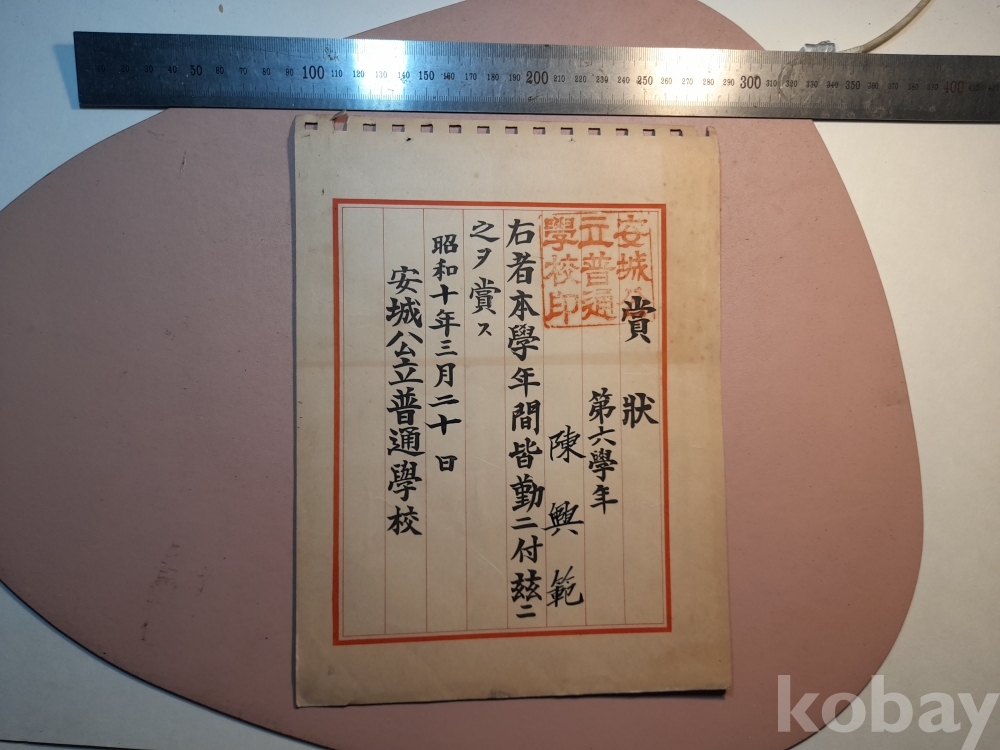 50 100 110 120 130 140 150 160 170 180 190 200 210 220 230 240 250 260 270 280 290 300 310 320 330 340 350 360 370 380 390 400
賞狀
第六學年
陳興範
右者本學年間皆勤ニ付玆ニ
之ヲ賞ス
昭和十年三月二十日
安城公立普通學校
安城公
立普通
學校印
kobay